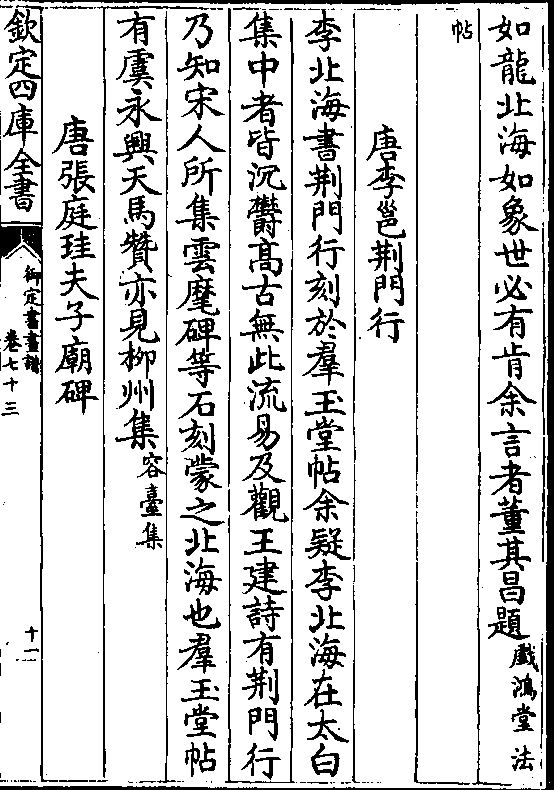 如龍北海如象世必有肯余言者董其昌題戲鴻堂法
帖
唐李邕荆門行
李北海書荆門行刻於羣玉堂帖余疑李北海在太白
集中者皆沉欝高古無此流易及觀王建詩有荆門行
乃知宋人所集雲麾碑等石刻蒙之北海也羣玉堂帖
有虞永興天馬贊亦見柳州集容臺集
唐張庭珪夫子廟碑
欽定四庫全書
御定書畫譜
卷七十三
十一